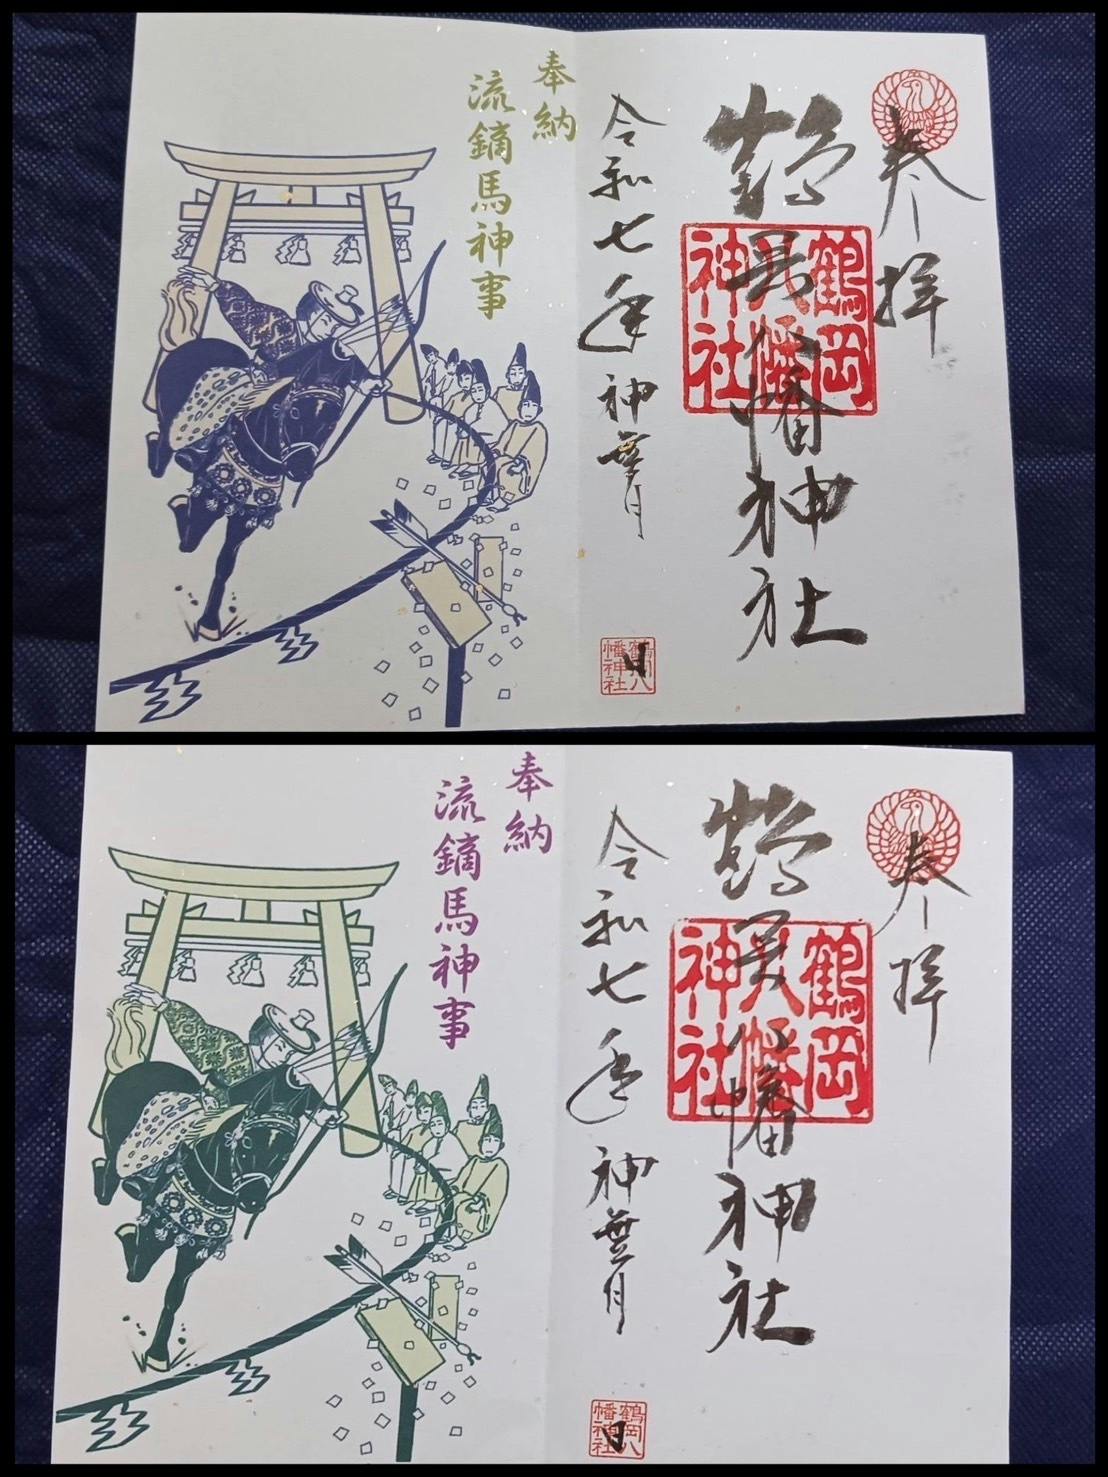 奉拝
鶴岡八幡神社
鶴岡
八幡
神社
令和七年神無月
日
鶴岡八
幡神社
奉納
流鏑馬神事
奉拝
鶴岡八幡神社
鶴岡
八幡
神社
令和七年神無月
日
鶴岡八
幡神社
奉納
流鏑馬神事